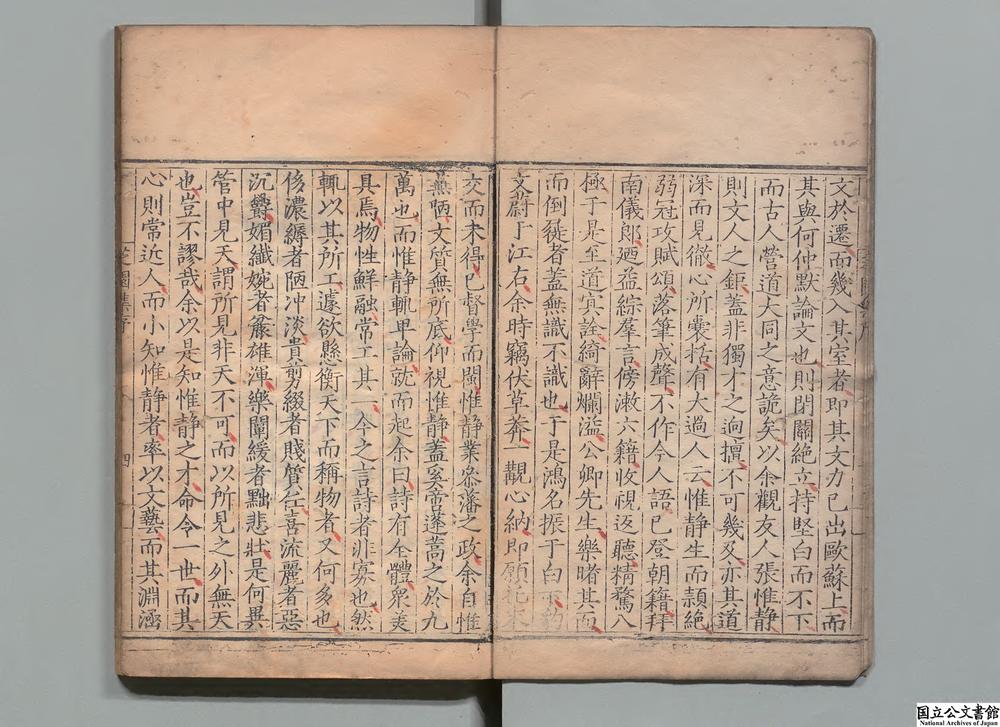 文於遷而幾入其室者即其文力已出歐蘇上而
其與何仲默論文也則閉關絕立持堅白而不下
而古人營道大同之意詭矣以余觀友人張惟静
則文人之鉅蓋非獨才之逈擅不可幾及亦其道
深而見徹心所囊括有大過人云惟静生而穎絕
弱冠攻賦頌落筆成聲不作今人語已登朝籍拜
南儀郎廼益綜羣言傍漱六籍收視返聽精騖八
極于是至道賓詮綺辭爛溢公卿先生樂睹其面
而倒屣者蓋無識不識也于是鴻名振于白下豹
文蔚于江右余時竊伏草莽一觀心納即願
交而未得已督學而閩惟静業叅藩之政余自惟
無陋文質無所底仰視惟静蓋奚啻蓬蒿之於九
萬也而惟静輒卑論就而起余曰詩有全體衆美
具焉物性鮮融常工其一今之言詩者非寡也然
輒以其所工遽欲懸衡天下而稱物者又何多也
侈濃縟者陋冲淡貴剪綴者賤質任喜流麗者惡
沉鬱媚纖婉者麄雄渾樂闡緩者黜悲壯是何異
管中見天謂所見非天不可而以所見之外無天
也豈不謬哉余以是知惟静之才命令一世而其
心則常近人而小知惟静者率以文藝而其淵涵
集序
四
国立公文書館
National Archives of Japan